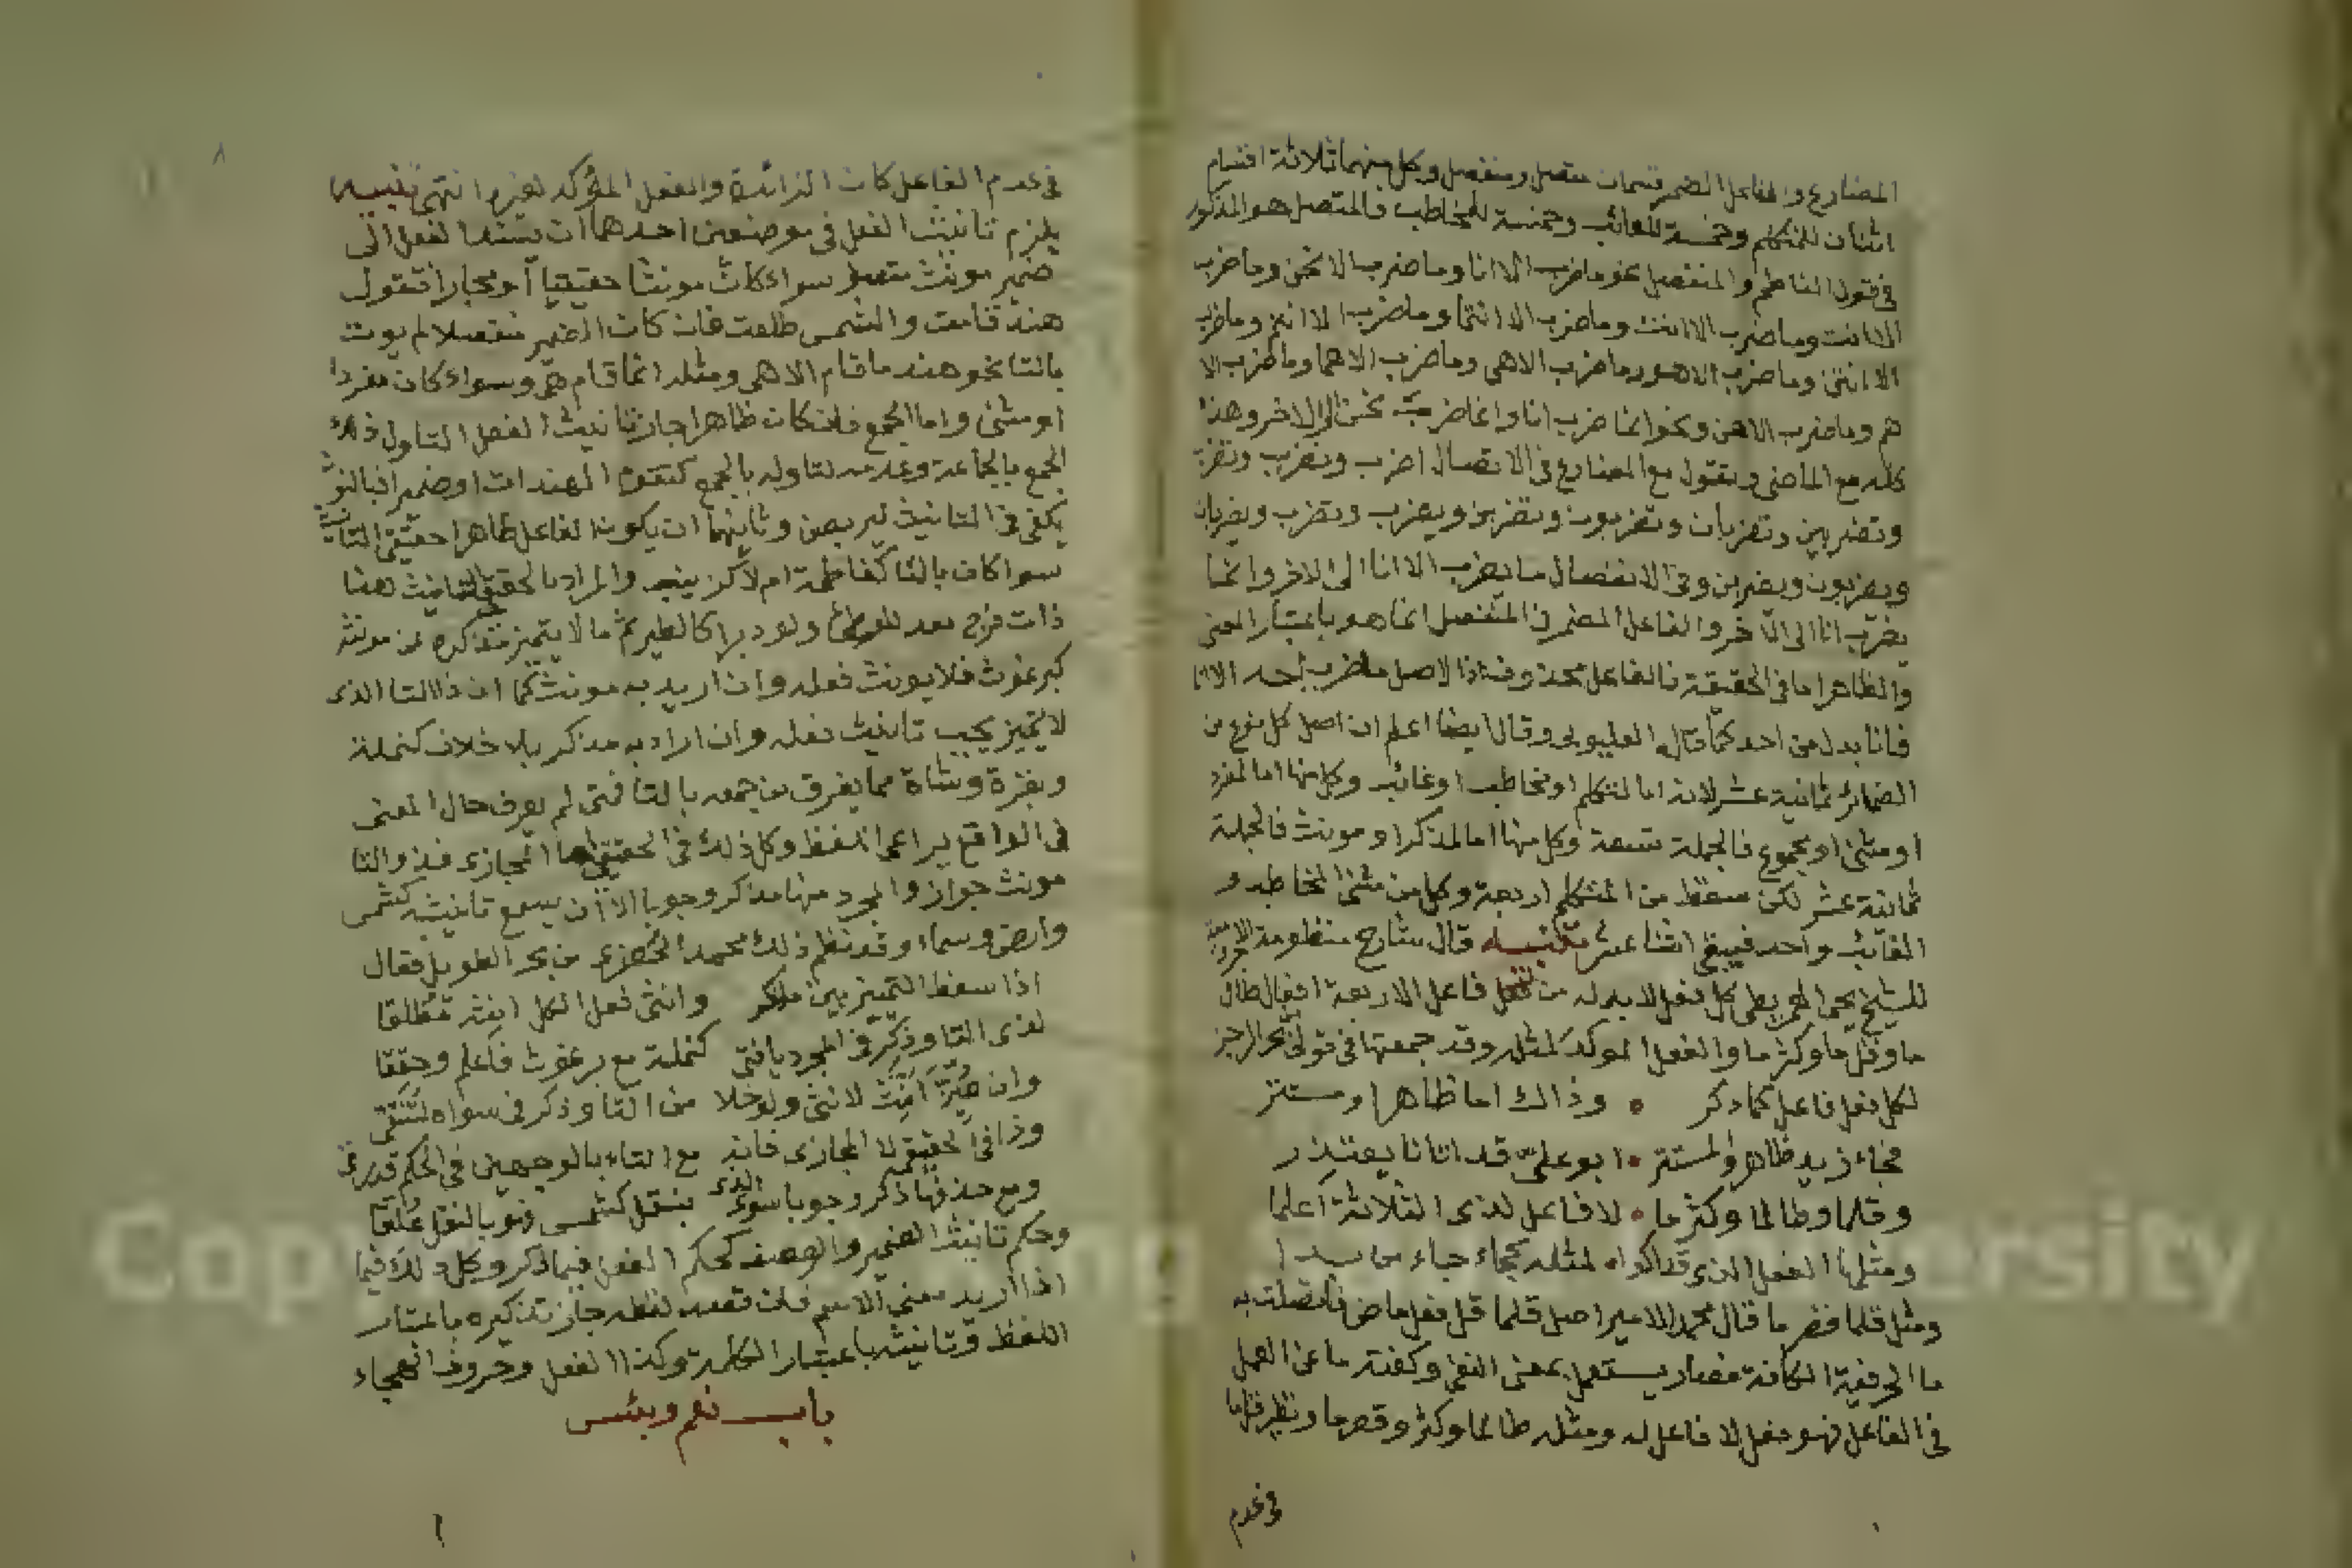 المضارع والفاعل المضمر قسمان متصل ومنفصل وكل منهما ثلاثة اقسام
اثنان للمتكلم وخمسة للغائب وخمسة للمخاطب فالمتصل هو المذكور
في قول الناظم والمنفصل نحو ما ضرب الا انا وما ضرب الا نحن وما ضرب
الا انت وما ضرب الا انت وما ضرب الا انتما وما ضرب الا انتم وما ضرب
الا انتن وما ضرب الا هو وما ضرب الا هي وما ضرب الا هما وما ضرب الا
هم وما ضرب الا هن ونحو انما ضرب انا وانما ضرب نحن الى الاخر وهذا
كله مع الماضي وتقول مع المضارع في الاتصال اضرب ونضرب وتضرب
وتضربين وتضربان وتضربون وتضربن ويضرب وتضرب ويضربان
ويضربون ويضربن وفي الانفصال ما يضرب الا انا الى الاخر وانما
يضرب انا الى الاخر والفاعل المضمر في المنفصل انما هو باعتبار المعنى
والظاهر اما في الحقيقة فالفاعل محذوف اذ الاصل ما ضرب احد الا انا
فانا بدل من احد كما قاله القليوبي وقال ايضا اعلم ان اصل كل نوع من
الضمائر ثمانية عشر لانه اما لمتكلم او مخاطب او غائب وكل منها اما لمفرد
او مثنى او مجموع فالجملة تسعة وكل منها اما لمذكر او مونث فالجملة
ثمانية عشر لكن سقط من المتكلم اربعة وكل من مثنى المخاطب و
الغائب واحد فيبقى اثنا عشر تنبيه قال شارح منظومة
للشيخ يحيى العمريطي كل فعل لا بد له من فاعل الا اربعة افعال طال
ما وقل ما وكثر ما والفعل الموكد لمثله وقد جمعتها في قولي بحر الرجز
لكل فعل فاعل كما ذكر • وذاك اما ظاهر او مستتر
فجاء زيد ظاهر والمستتر • ابو علي قد اتانا يعتذر
وقلما وطالما وكثر ما • لا فاعل لذى الثلاثة اعلما
ومثلها الفعل الذي قد اكدوا • لمثله كجاء جاء
ومثل قلما قصر ما قال محمد الامير اصل قلما قل فعل ماض فاتصلت به
ما الحرفية الكافة فصار يستعمل بمعنى النفي وكفته ما عن العمل
في الفاعل فهو فعل لا فاعل له ومثله طالما وكثر وقصر ما
في عدم
في عدم الفاعل كان الزائدة والفعل المؤكد لغيره انتهى تنبيه
يلزم تانيث الفعل في موضعين احدهما ان يسند الفعل الى
ضمير مونث متصل سواء كان مونثا حقيقيا او مجازا فتقول
هند قامت والشمس طلعت فان كان الضمير منفصلا لم يوت
بالتا نحو هند ما قام الا هي ومثله انما قام هي وسواء كان مفردا
او مثنى واما الجمع فان كان ظاهرا جاز تانيث الفعل لتاول ذلك
الجمع بالجماعة وعدمه لتاوله بالجمع كتقوم الهندات او ضميرا فبالنون
يكفي في التانيث ليربصن وثانيهما ان يكون الفاعل ظاهرا حقيقي التانيث
سوا كان بالتا كفاطمة ام لا كزينب والمراد بالحقيقي التانيث هنا
ذات فرج معد للوطئ ولو دبرا كالطير ثم ما لا يتميز مذكره عن مونثه
كبرغوث فلا يونث فعله وان اريد به مونث كما ان ذا التا الذى
لا يتميز يجب تانيث فعله وان اراد به مذكر بلا خلاف كنملة
وبقرة وشاة مما يفرق من جمعه بالتا فمتى لم يعرف حال المعنى
في الواقع يراعى اللفظ وكل ذلك في الحقيقي اما المجازى فذو التا
مونث جوازا والمجرد منها مذكر وجوبا الا ان يسمع تانيثه كشمس
وارض وسماء وقد نظم ذلك محمد الخضري من بحر الطويل فقال
اذا سقط التمييز بين مذكر وانثى فعل الكل انثه مطلقا
لذى التا وذكر في المجرد يا فتى كنملة مع برغوث فاعلم وحققا
وان ميز انث لانثى ولو خلا من التا وذكر في سواه لتتقى
وذا في الحقيقي لا المجازى فانه مع التاء بالوجهين في الحكم
ومع حذفها ذكر وجوبا سوى الذى بنقل كشمس فهو بالنقل علقا
وحكم تانيث الضمير والوصف كحكم الفعل فيما ذكر وكل ذلك فيما
اذا اريد معنى الاسم فان قصد لفظه جاز تذكيره باعتبار
اللفظ وتانيثه باعتبار الكلمة وكذا الفعل وحروف الهجاء
باب نعم وبئس
Copyright © King Saud University